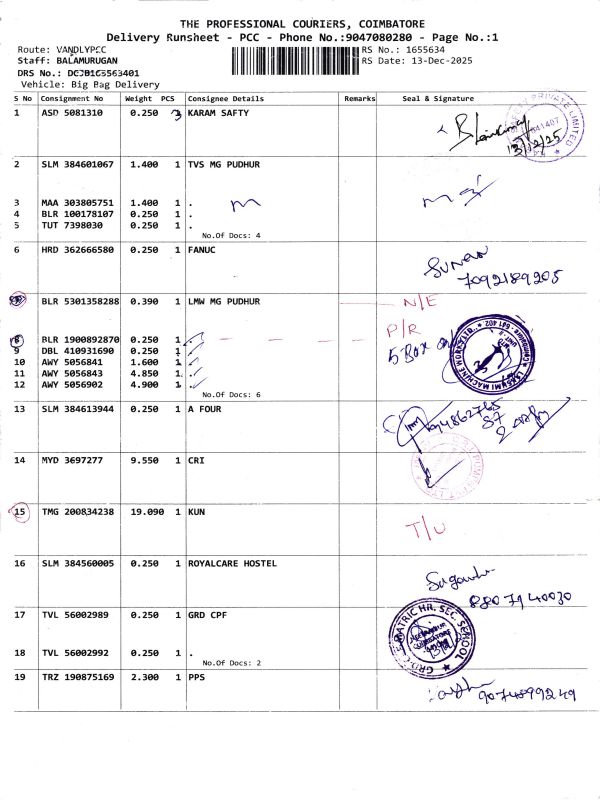 THE PROFESSIONAL COURIERS, COIMBATORE
Delivery Runsheet - PCC - Phone No.:9047080280 - Page No.:1
Route: VANDLYPCC
RS No.: 1655634
Staff: BALAMURUGAN
RS Date: 13-Dec-2025
DRS No.: DCJB1C5563401
Vehicle: Big Bag Delivery
S No Consignment No Weight PCS Consignee Details Remarks Seal & Signature
1 ASD 5081310 0.250 3 KARAM SAFTY
13/12/25
2 SLM 384601067 1.400 1 TVS MG PUDHUR
3 MAA 303805751 1.400 1 .
4 BLR 100178107 0.250 1 .
5 TUT 7398030 0.250 1 .
No.Of Docs: 4
6 HRD 362666580 0.250 1 FANUC
7092189205
BLR 5301358288 0.390 1 LMW MG PUDHUR N/E
P/R
8 BLR 1900892870 0.250 1 .
5 Box
9 DBL 410931690 0.250 1 .
10 AWY 5056841 1.600 1 .
11 AWY 5056843 4.850 1 .
12 AWY 5056902 4.900 1 .
No.Of Docs: 6
LAKSHMI MACHINE WORKS LTD. ★ COIMBATORE - 641 402
13 SLM 384613944 0.250 1 A FOUR
14 MYD 3697277 9.550 1 CRI
15 TMG 200834238 19.090 1 KUN
T/U
16 SLM 384560005 0.250 1 ROYALCARE HOSTEL
8807940030
17 TVL 56002989 0.250 1 GRD CPF
MATRIC HR. SEC. SCHOOL
18 TVL 56002992 0.250 1 .
No.Of Docs: 2
19 TRZ 190875169 2.300 1 PPS
9074899249